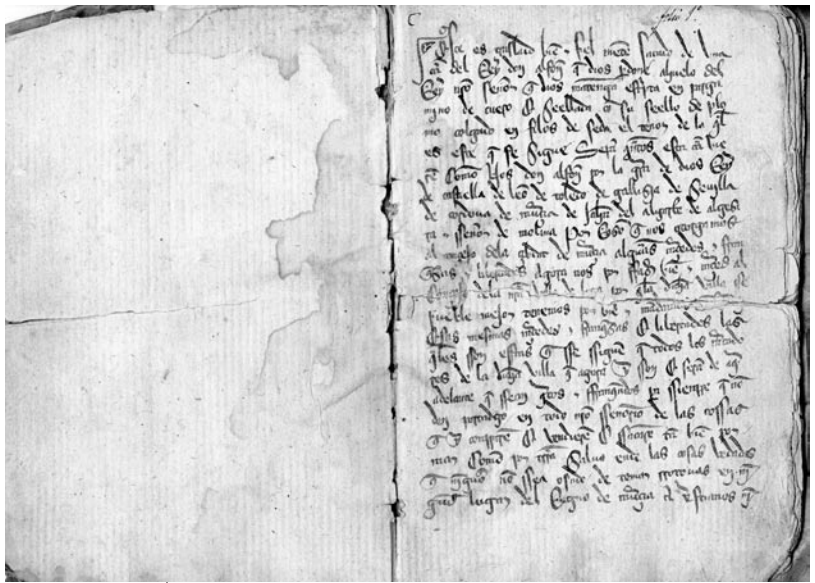 folio 1º
Este es traslado bien e fiel mente sacado de una
carta del Rey don alfonso q dios perdone abuelo del
Rey nro señor q dios mantenga escripta en parga
mino de cuero e seellada con su seello de plo
mo colgado en filos de seda el tenor de la ql
es este q se sigue Sepan quantos esta carta vie
ren Como Nos don alfonso por la gra de dios Rey
de castiella de leon de toledo de gallizia de Sevilla
de cordova de murcia de Jahen del algarbe de algezi
ra e sseñor de molina Por Razon q nos otorgamos
al conçejo dela çibdat de murcia algunas mercedes e fran
quezas e libertades Agora nos por fazer bien e merced al
Conçejo dela nra villa de lorca por q la dicha villa se
pueble mejor tenemos por bien e mandamos
essas mesmas mercedes e franquezas e libertades las
quales son estas q sse siguen q todos los mercado
res de la dicha villa q agora y son e seran de aqui
adelante q sean quitos e ffranqueados pa sienpre q non
den portadgo en todo nro sseñorio de las cossas
q y conpraren e vendieren e sacaren tan bien por
mar Como por tierra Salvo ende las cosas vedadas
q ninguno non ssea osado de tomar rrotovas en nin
gund lugar del Regno de murcia